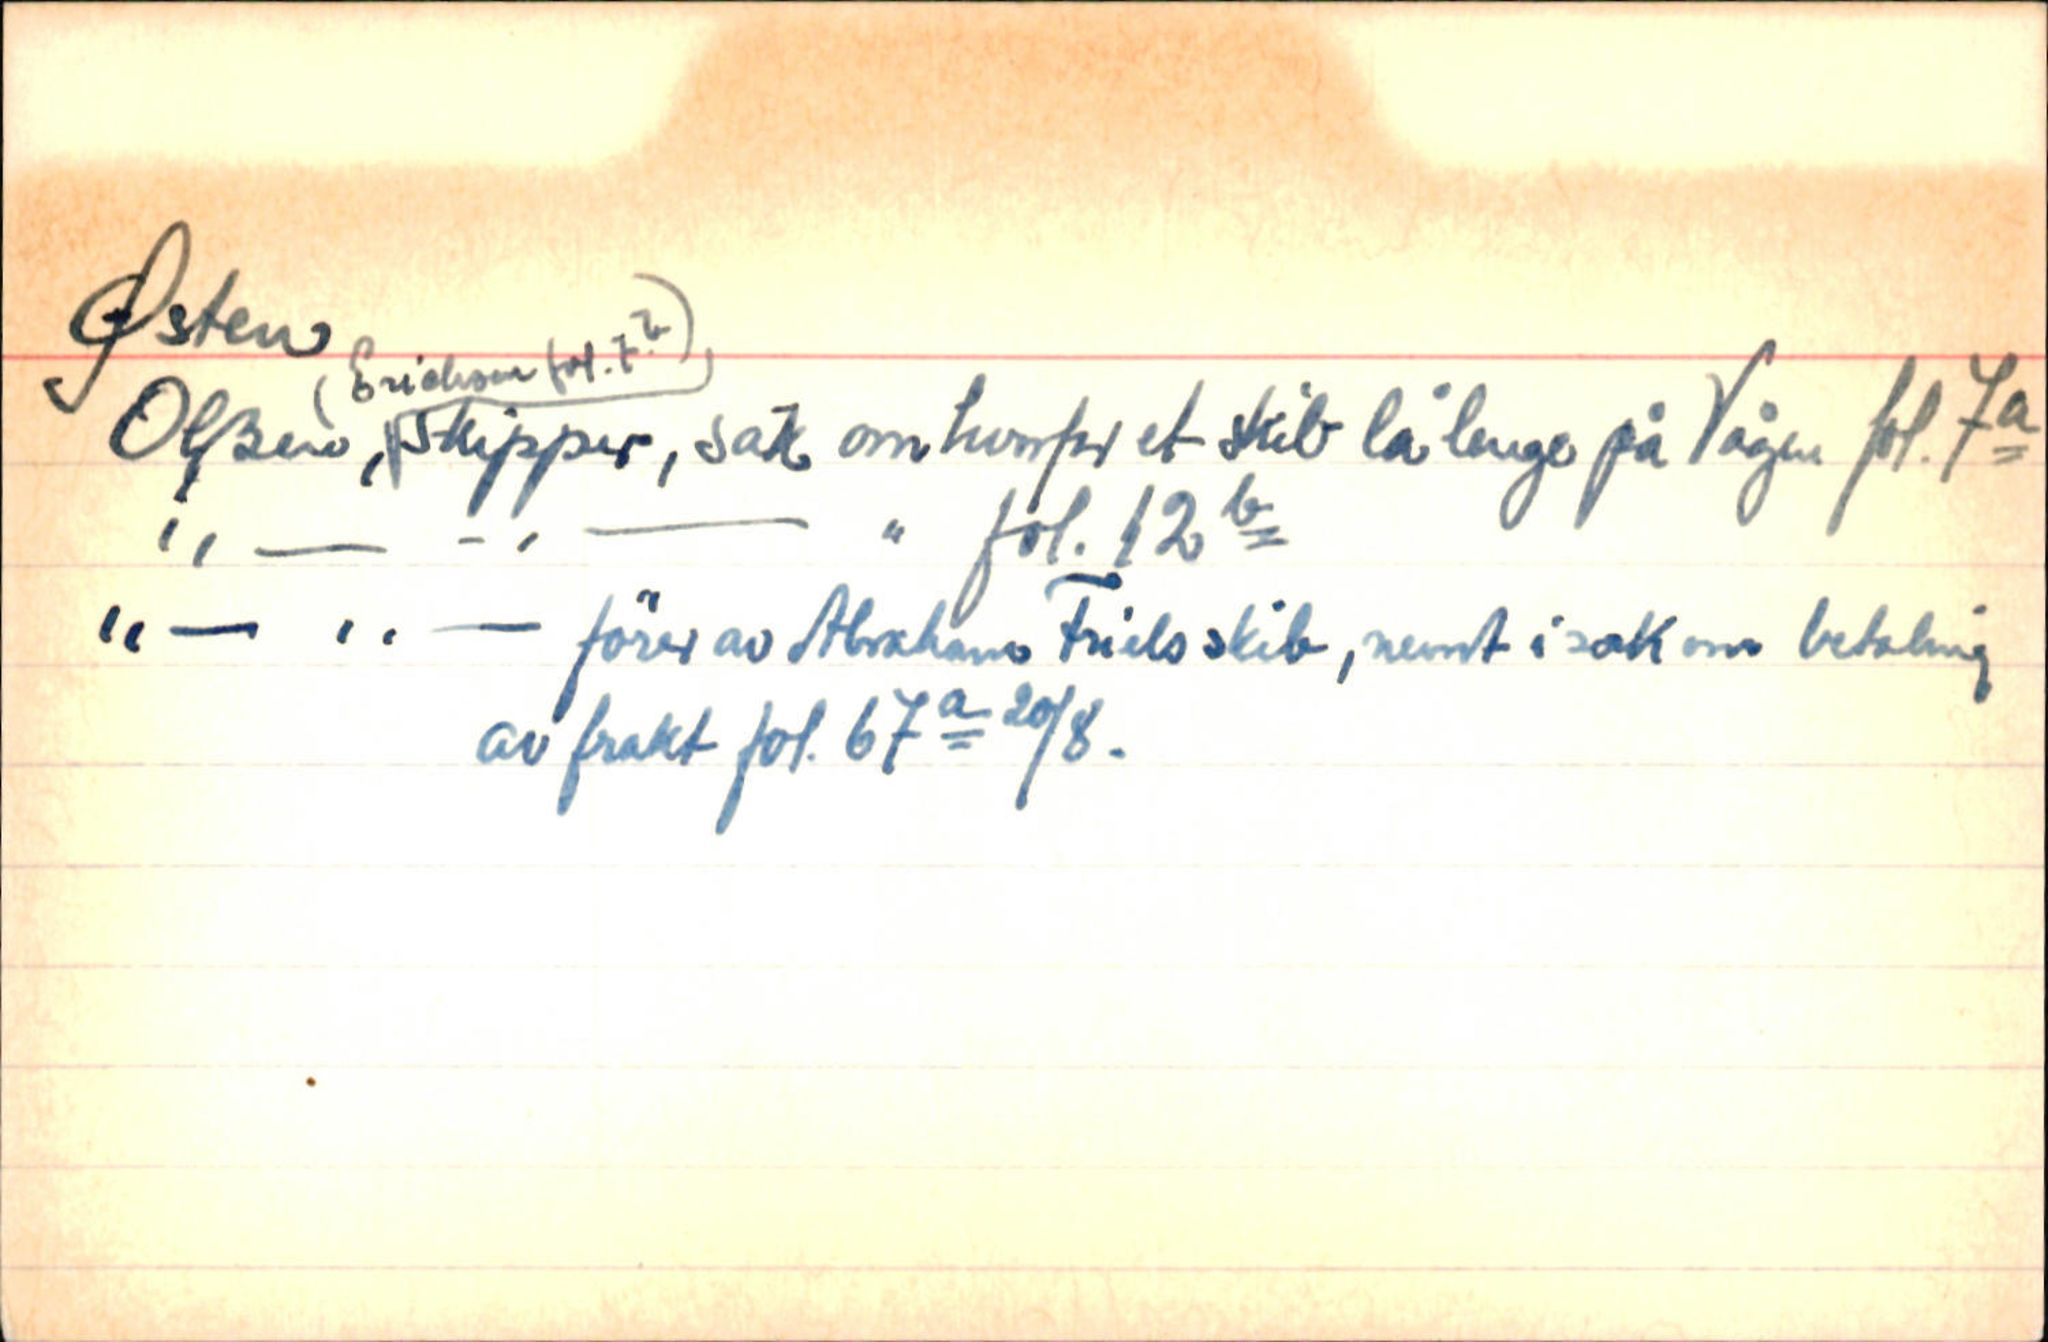 Østen
(Erichsen fol. 7b)
Olßen, skipper, sak om hvorfor et skib lå lenge på Vågen fol. 7a
" — - " — " fol. 12b
" — " — förer av Abraham Friels skib, nevnt i sak om betaling
av frakt fol. 67a 20/8.